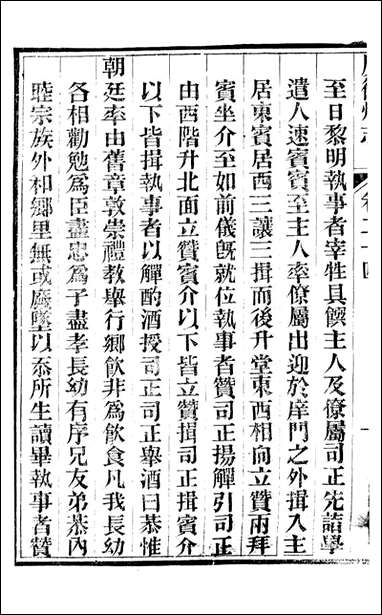 至日黎明執事者宰牲具饌主人及僚屬司正先詣學
遣人速賓賓至主人率僚屬出迎於庠門之外揖入主
居東賓居西三讓三揖而後升堂東西相向立贊兩拜
賓坐介至如前儀旣就位執事者贊司正揚觶引司正
由西階升北面立贊賓介以下皆立贊司正揖賓介
以下皆揖執事者以觶酌酒授司正司正舉酒曰恭惟
朝廷率由舊章敦崇禮教舉行鄉飲非為飲食凡我長幼
各相勸勉為臣盡忠為子盡孝長幼有序兄友弟恭內
睦宗族外和鄉里無或廢墜以忝所生讀畢執事者贊